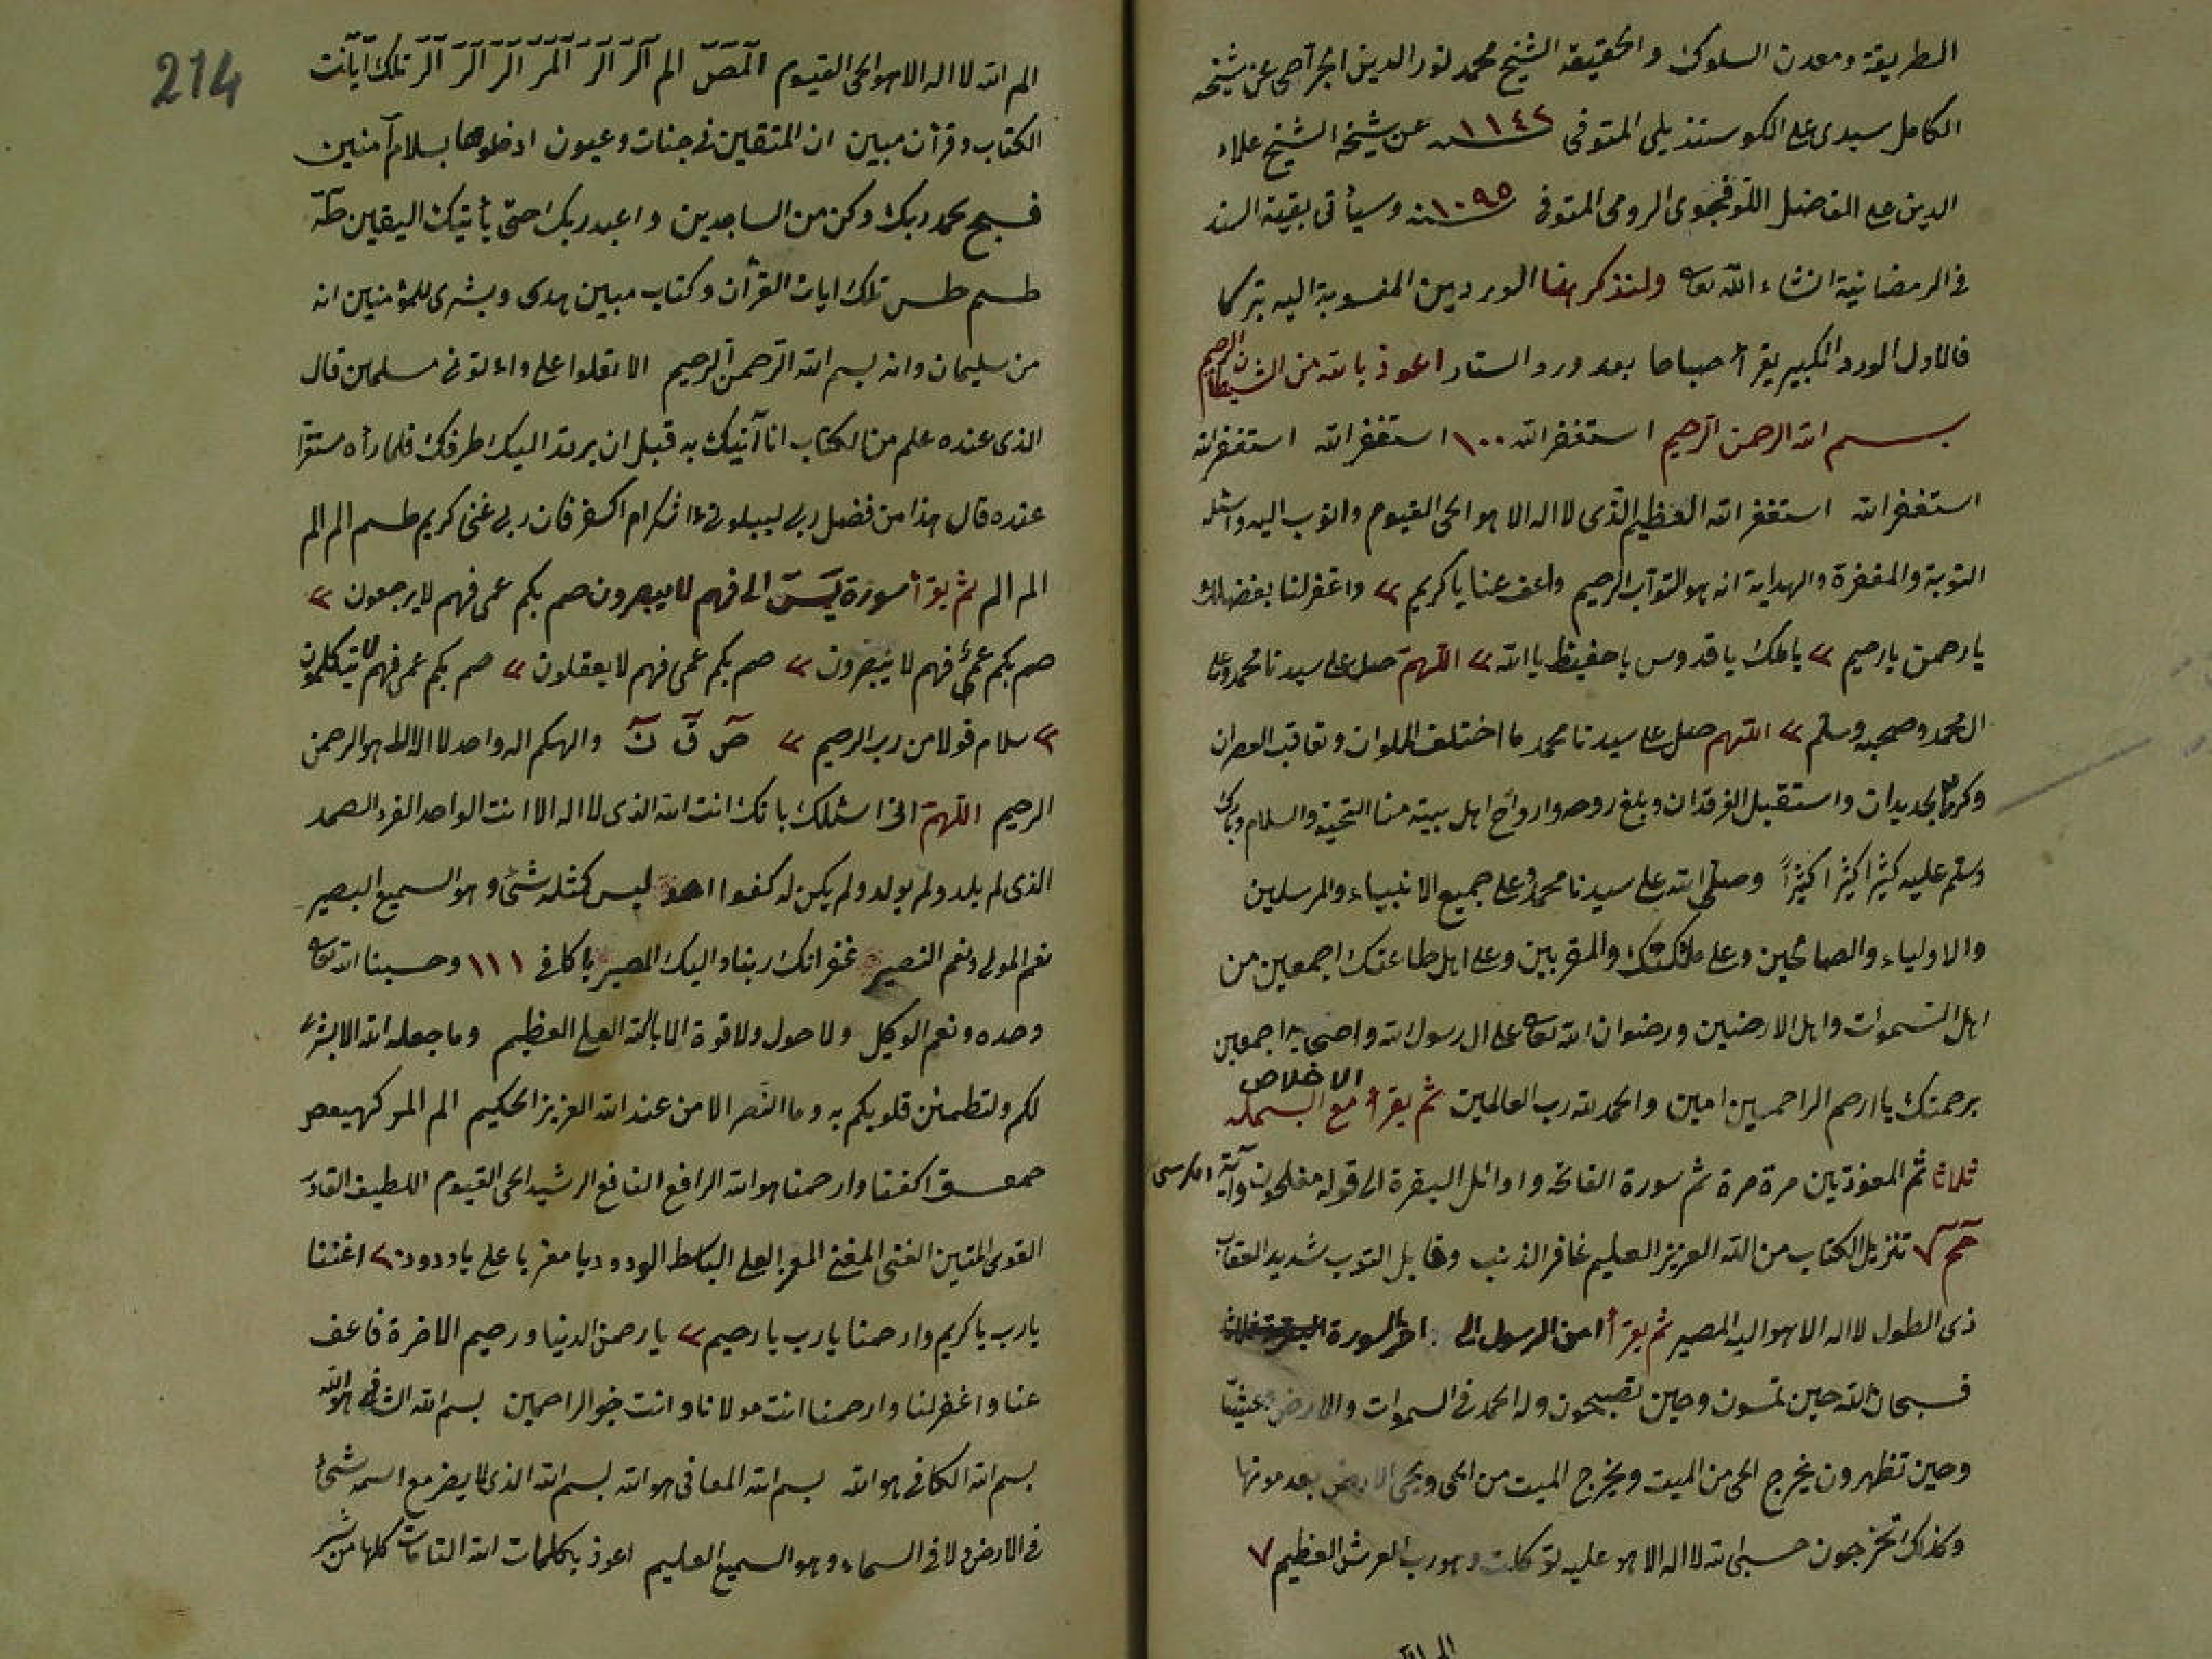 الطريقة ومعدن السلوك والحقيقة الشيخ محمد نور الدين الجراحى عن شيخه
الكامل سيدى على الكوستنديلى المتوفى سنه ١١٤٢ عن شيخه الشيخ علاء
الدين على الفاضل اللوفجوى الرومى المتوفى سنه ١٠٩٥ وسيأتى بقية السند
فى الرمضانية انشاء الله تعا ولنذكر هنا الوردين المنسوبة اليه تبركا
فالاول الورد الكبير يقرأ صباحا بعد ورد الستار اعوذ بالله من الشيطان الرجيم
بسم الله الرحمن الرحيم استغفر الله ١٠٠ استغفر الله استغفر الله
استغفر الله استغفر الله العظيم الذى لا اله الا هو الحى القيوم واتوب اليه واسئله
التوبة والمغفرة والهداية انه هو التواب الرحيم واعف عنا يا كريم ٢ واغفر لنا بفضلك
يا رحمن يا رحيم ٢ يا ملك يا قدوس يا حفيظ يا الله ٢ اللهم صل على سيدنا محمد وعلى
ال محمد وصحبه وسلم ٢ اللهم صل على سيدنا محمد ما اختلف الملوان وتعاقب العصران
وكر الجديدان واستقبل الفرقدان وبلغ روحه وارواح اهل بيته منا التحية والسلام وبارك
وسلم عليه كثيرا كثيرا كثيراً وصلى الله على سيدنا محمد وعلى جميع الانبياء والمرسلين
والاولياء والصالحين وعلى ملئكتك والمقربين وعلى اهل طاعتك اجمعين من
اهل السموات واهل الارضين ورضوان الله تعا على ال رسول الله واصحابه اجمعين
برحمتك يا ارحم الراحمين امين والحمد لله رب العالمين ثم يقرأ الاخلاص مع البسمله
ثلاثا ثم المعوذتين مرة مرة ثم سورة الفاتحة واوائل البقرة الى قوله مفلحون وآية الكرسى
حم ٧ تنزيل الكتاب من الله العزيز العليم غافر الذنب وقابل التوب شديد العقاب
ذى الطول لا اله الا هو اليه المصير ثم يقرأ امن الرسول الى اخر السورة
فسبحان الله حين تمسون وحين تصبحون وله الحمد فى السموات والارض وعشيا
وحين تظهرون يخرج الحى من الميت ويخرج الميت من الحى ويحى الارض بعد موتها
وكذلك تخرجون حسبى الله لا اله الا هو عليه توكلت وهو رب العرش العظيم ٧
214
الم الله لا اله الا هو الحى القيوم المص الم الر الر المر الر الر الر تلك آيات
الكتاب وقرأن مبين ان المتقين فى جنات وعيون ادخلوها بسلام آمنين
فسبح بحمد ربك وكن من الساجدين واعبد ربك حتى يأتيك اليقين طه
طسم طس تلك ايات القرآن وكتاب مبين هدى وبشرى للمؤمنين انه
من سليمان وانه بسم الله الرحمن الرحيم الا تعلوا على واءتونى مسلمين قال
الذى عنده علم من الكتاب انا آتيك به قبل ان يرتد اليك طرفك فلما رأه مستقرا
عنده قال هذا من فضل ربى ليبلونى ءاشكر ام اكفر فان ربى غنى كريم طسم الم الم
الم الم ثم يقرأ سورة يس الى فهم لا يبصرون صم بكم عمى فهم لا يرجعون ٢
صم بكم عمى فهم لا يبصرون ٢ صم بكم عمى فهم لا يعقلون ٢ صم بكم عمى فهم لا يتكلمون
٢ سلام قولا من رب الرحيم ٢ ص ق ن والهكم اله واحد لا اله الا هو الرحمن
الرحيم اللهم انى اسئلك بانك انت الله الذى لا اله الا انت الواحد الفرد الصمد
الذى لم يلد ولم يولد ولم يكن له كفوا احد ليس كمثله شئ وهو السميع البصير
نعم المولى ونعم النصير غفرانك ربنا واليك المصير يا كافى ١١١ وحسبنا الله تعا
وحده ونعم الوكيل ولا حول ولا قوة الا بالله العلى العظيم وما جعله الله الا بشرى
لكم ولتطمئن قلوبكم به وما النصر الا من عند الله العزيز الحكيم الم المر كهيعص
حمعسق اكفنا وارحمنا هو الله الرافع النافع الرشيد الحى القيوم اللطيف القادر
القوى المتين الغنى المغنى المعز العلى الباسط الودود يا معز يا على يا ودود ٢ اغننا
يا رب يا كريم وارحمنا يا رب يا رحيم ٢ يا رحمن الدنيا ورحيم الاخرة فاعف
عنا واغفر لنا وارحمنا انت مولانا وانت خير الراحمين بسم الله الشافى هو الله
بسم الله الكافى هو الله بسم الله المعافى هو الله بسم الله الذى لا يضر مع اسمه شئ
فى الارض ولا فى السماء وهو السميع العليم اعوذ بكلمات الله التامات كلها من شر